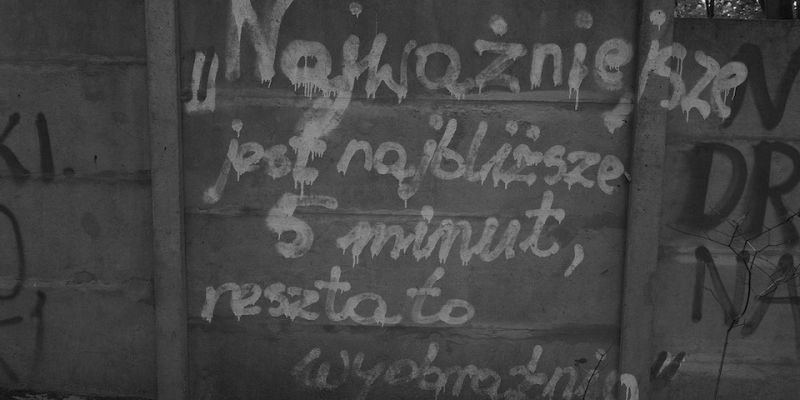 „Najważniejsze
jest najbliższe
5 minut,
reszta to
wyobraźnia”
KI.
N
DR
NA